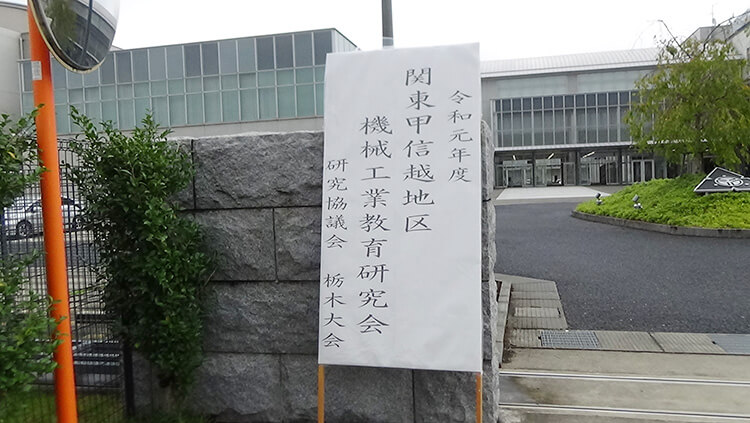 令和元年度
関東甲信越地区
機械工業教育研究会
研究協議会 栃木大会